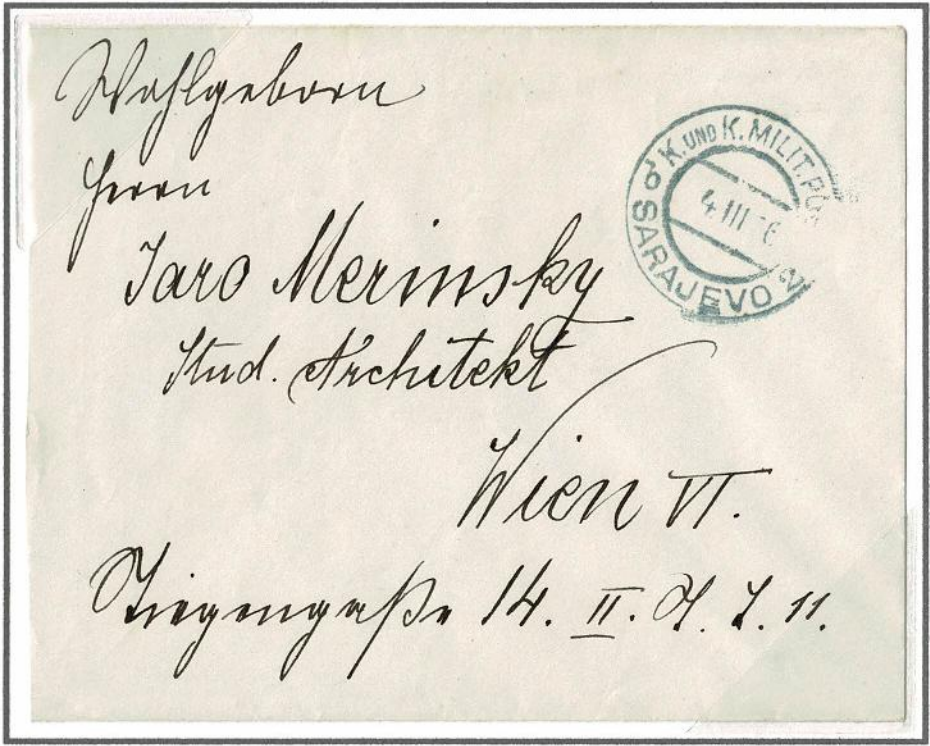 Wohlgeborn
Herrn
Jaro Merinsky
Stud. Architekt
Wien VI.
Stiegengaße 14. II. St. T. 11.
K. UND K. MILIT. PO
4 III 6
SARAJEVO 2